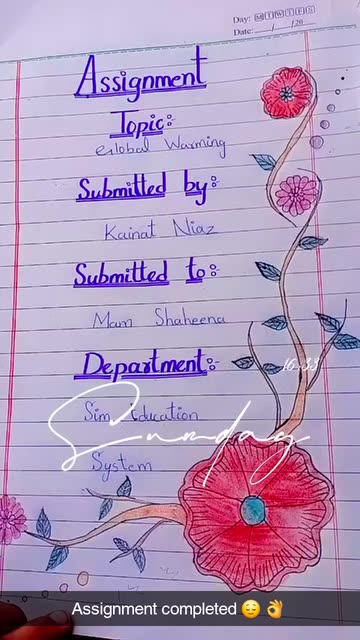 Day: M T W T F S
Date: __/__/20__
Assignment
Topic:
Global Warming
Submitted by:
Kainat Niaz
Submitted to:
Mam Shaheena
Department:
16:33
Sim Education
Sunday
System
Assignment completed 😌 👌